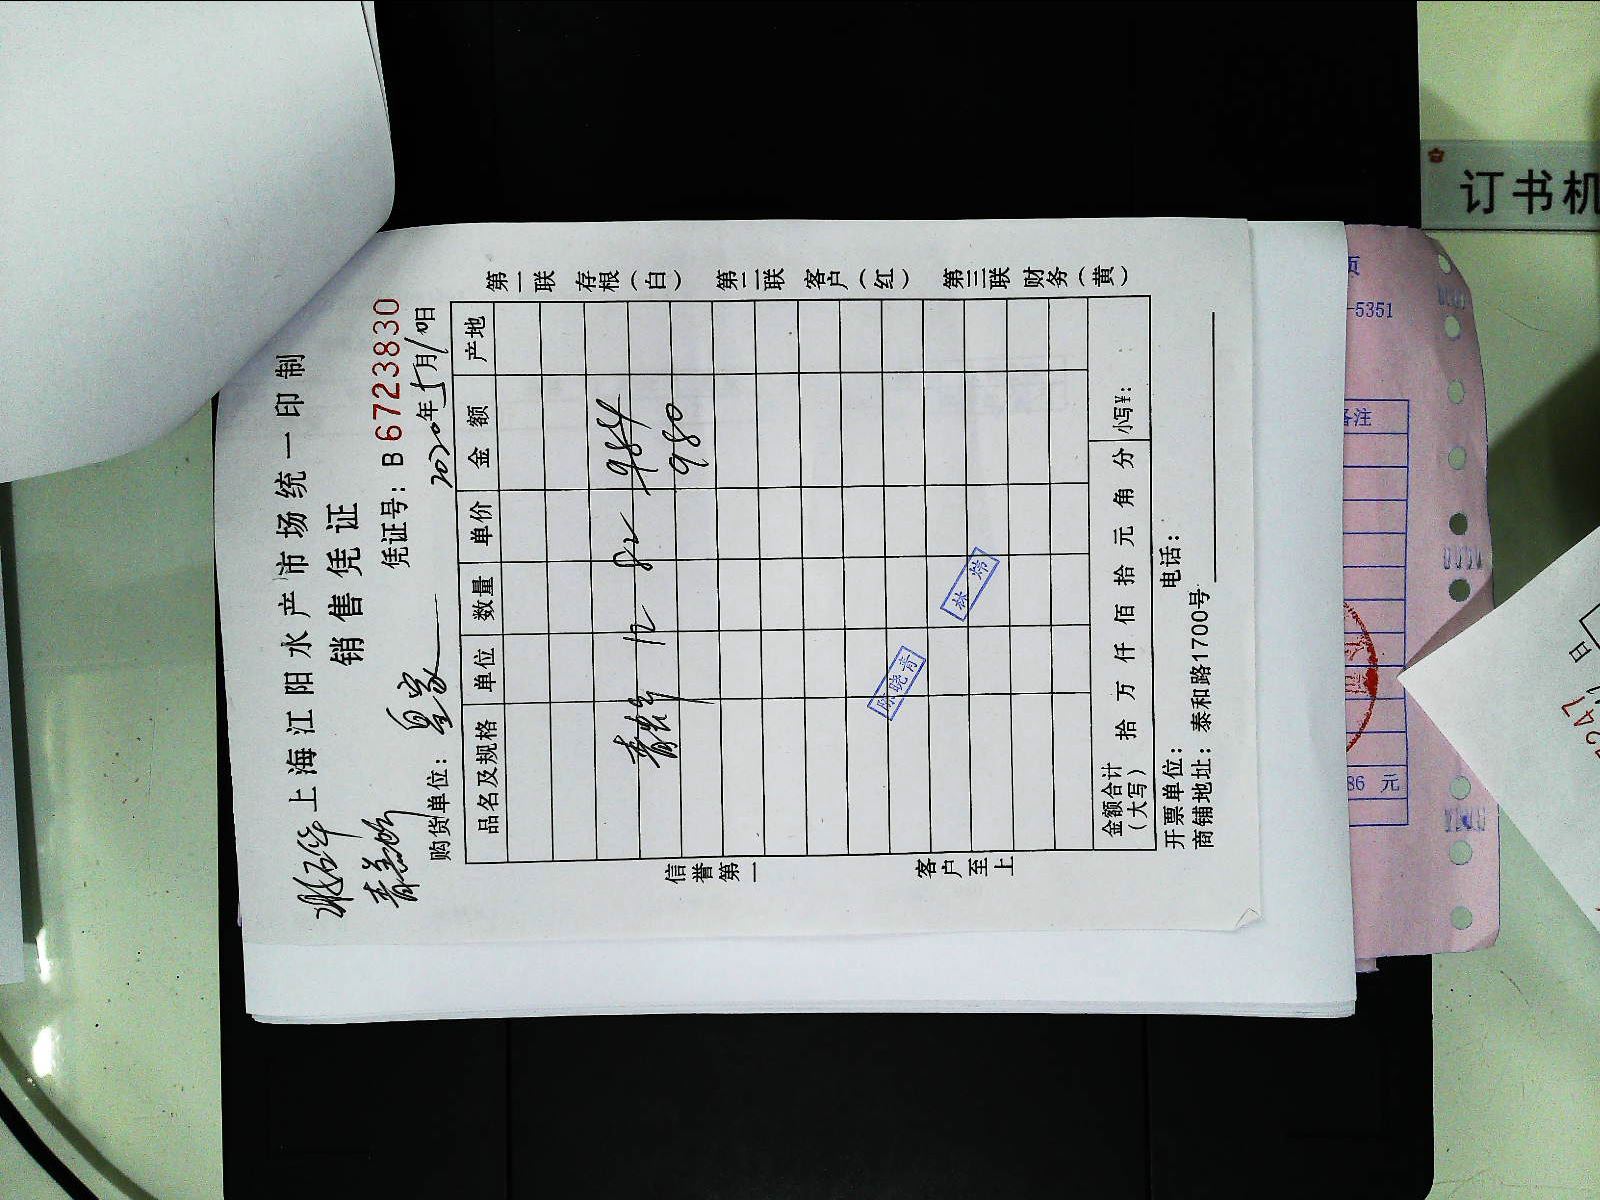 上海江阳水产市场统一印制
销售凭证
凭证号：B 6723830
购货单位：皇家
2020年5月10日
品名及规格 单位 数量 单价 金额 产地
12 82 984
980
金额合计（大写） 拾 万 仟 佰 拾 元 角 分 小写¥：
开票单位： 电话：
商铺地址：泰和路1700号
第一联 存根（白） 第二联 客户（红） 第三联 财务（黄）
信誉第一 客户至上
陈晓青
林炜
订书机
-5351
备注
86 元